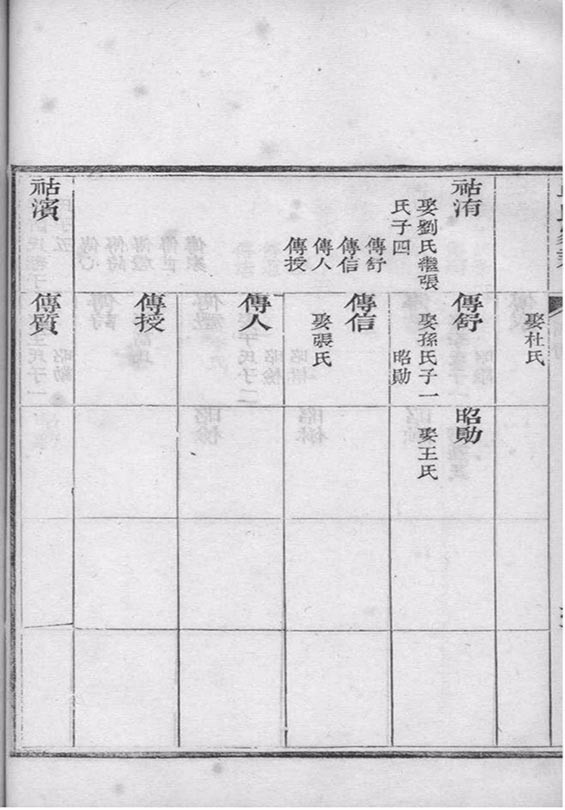 娶杜氏
祜洧
娶劉氏繼張
氏子四
傳舒
傳信
傳人
傳授
傳舒
娶孫氏子一
昭勛
昭勛
娶王氏
傳信
娶張氏
傳人
傳授
祜濱
傳質